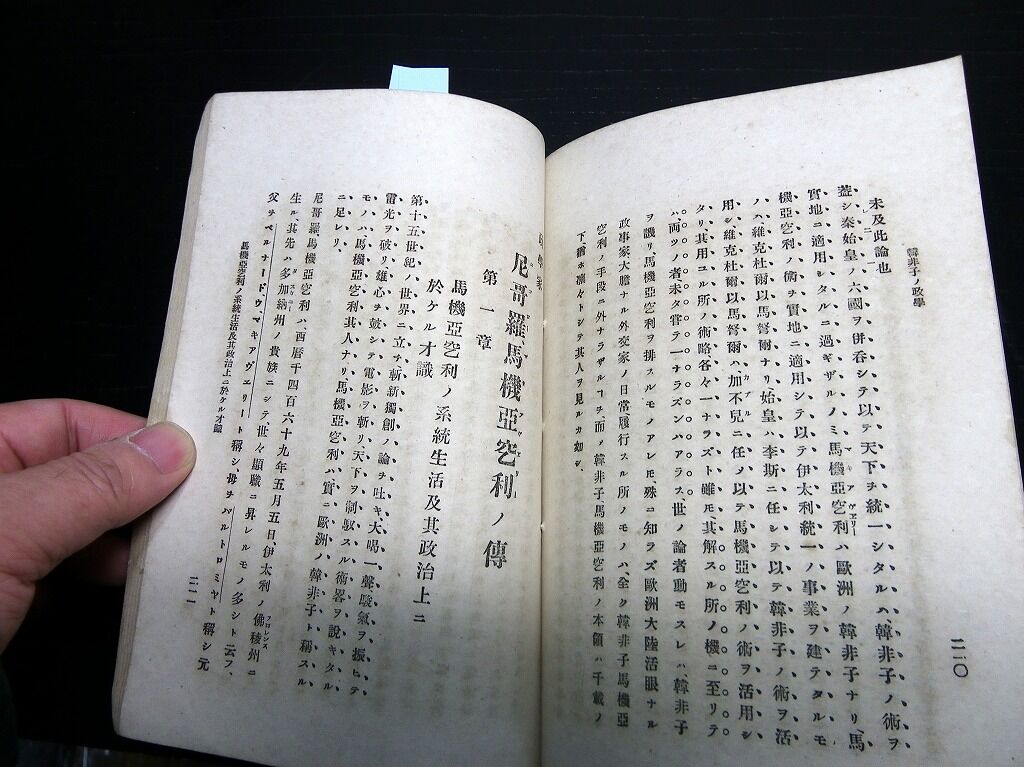 韓非子ノ政學
二〇
未及此論也
蓋シ秦始皇ノ六國ヲ併呑シテ以テ天下ヲ統一シタルハ韓非子ノ術ヲ
實地ニ適用シタルニ過ギザルノミ馬機亞空利ハ歐洲ノ韓非子ナリ馬
機亞空利ノ術ヲ實地ニ適用シテ以テ伊太利統一ノ事業ヲ建テタルモ
ノハ維克杜爾以馬弩爾ナリ始皇ハ李斯ニ任シテ以テ韓非子ノ術ヲ活
用シ維克杜爾以馬弩爾ハ加不兒ニ任ノ以テ馬機亞空利ノ術ヲ活用シ
タリ其用ユル所ノ術略各々一ナラズト雖モ其解スル所ノ機ニ至リテ
ハ兩ツノ者未タ嘗テ一ナラズンハアラス世ノ論者動モスレハ韓非子
ヲ譏リ馬機亞空利ヲ排スルモノアレモ殊ニ知ラズ歐洲大陸活眼ナル
政事家大膽ナル外交家ノ日常履行スル所ノモノハ全ク韓非子馬機亞
空利ノ手段ニ外ナラザルヿヲ而ノ韓非子馬機亞空利ノ本領ハ千載ノ
下猶ホ凛々トシテ其人ヲ見ルカ如シ
尼哥羅馬機亞空利ノ傳
第一章
馬機亞空利ノ系統生活及其政治上ニ
於ケル才識
第十五世紀ノ世界ニ立チ斬新獨創ノ論ヲ吐キ大喝一聲駿氣ヲ振ヒテ
雷光ヲ破リ雄心ヲ皷シテ電影ヲ斬リ天下ヲ制馭スル術畧ヲ說キタル
モノハ馬機亞空利其人ナリ馬機亞空利ハ實ニ歐洲ノ韓非子ト稱スル
ニ足レリ
尼哥羅馬機亞空利ハ西曆千四百六十九年五月五日伊太利ノ佛稜州ニ
生ル其先ハ多加納州ノ貴族ニシテ世々顯職ニ昇レルモノ多シト云フ
父ヲベルナードゥ、マキアヴェリート稱シ母ヲバルトロミヤト稱シ元
馬機亞空利ノ系統生活及其政治上ニ於ケル才識
二一